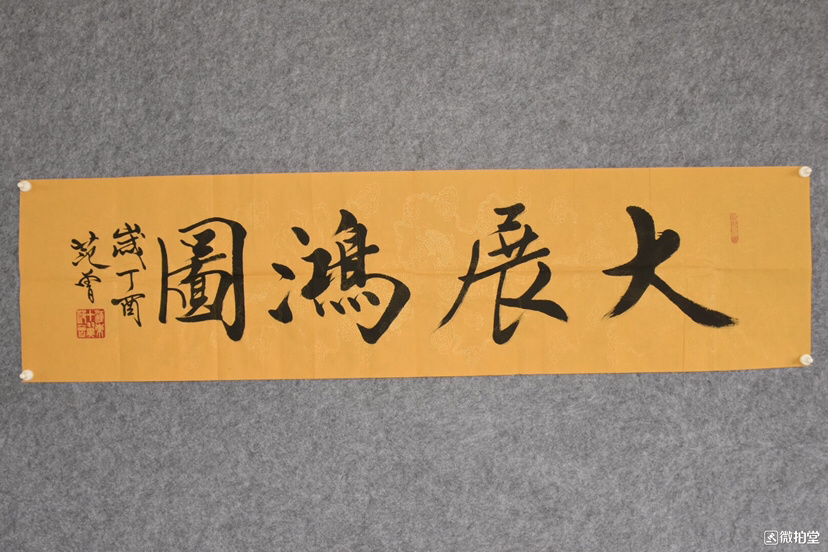 大展鴻圖
歲丁酉
范曾
微拍堂